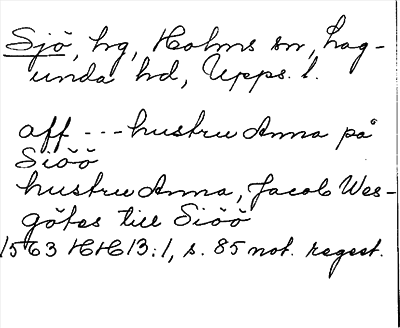 Sjö, hg, Holms sn, Lag-
unda hd, Upps. l.
aff --- hustru Anna på
Siöö
hustru Anna, Jacob Wes-
götes till Siöö
1563 HH 13:1, s. 85 not. regest.